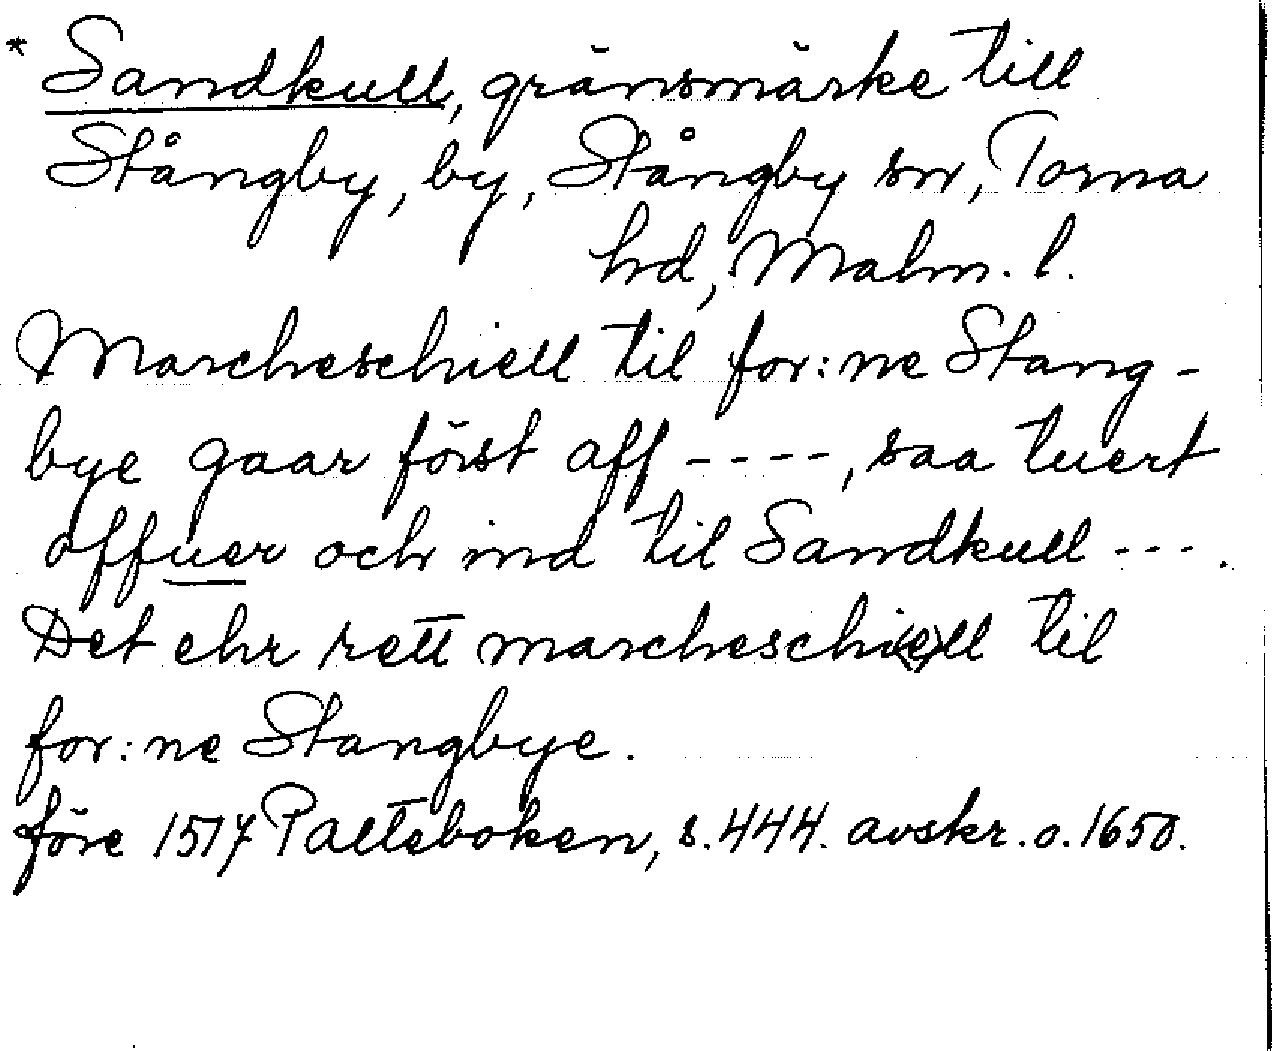 * Sandkull, gränsmärke till
Stångby, by, Stångby sn, Torna
hd, Malm. l.
Marcheschiell til for:ne Stang-
bye gaar först aff ----, saa tuert
offuer och ind til Sandkull ---.
Det ehr rett marcheschi(e)ll til
for:ne Stangbye.
före 1517 Palteboken, s. 444. avskr. o. 1650.